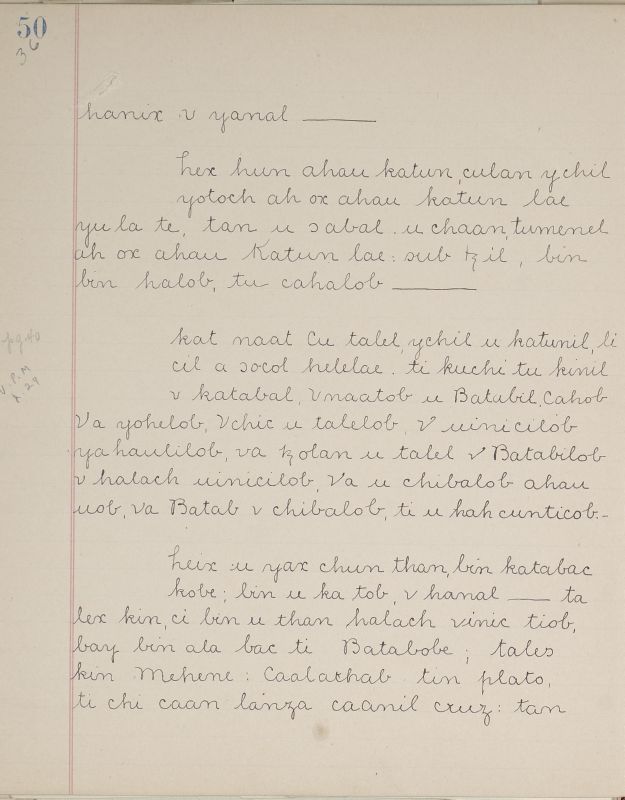 50
36
hanix v yanal ———
hex hun ahau katun, culan ychil
yotoch ah ox ahau katun lae
yu la te, tan u ɔabal . u chaan, tumenel
ah ox ahau Katun lae: sub tzil, bin
bin halob, tu cahalob ———
kat naat Cu talel, ychil u katunil, li
cil a ɔocol helelae . ti kuchi tu kinil
v katabal, v naatob u Batabil. Cahob
Va yohelob, Vchic u talelob, V uinicilob
yahaulilob, va tzolan u talel v Batabilob
v halach uinicilob, Va u chibalob ahau
uob, va Batab v chibalob, ti u hah cunticob.-
heix u yax chun than, bin katabac
kobe; bin u ka tob, v hanal —— ta
lex kin, ci bin u than halach vinic tiob,
bay bin ala bac ti Batabobe; tales
kin Mehene : Caalathab tin plato,
ti chi caan lánza caanil cruz: tan
pg 40
V. P. M
29